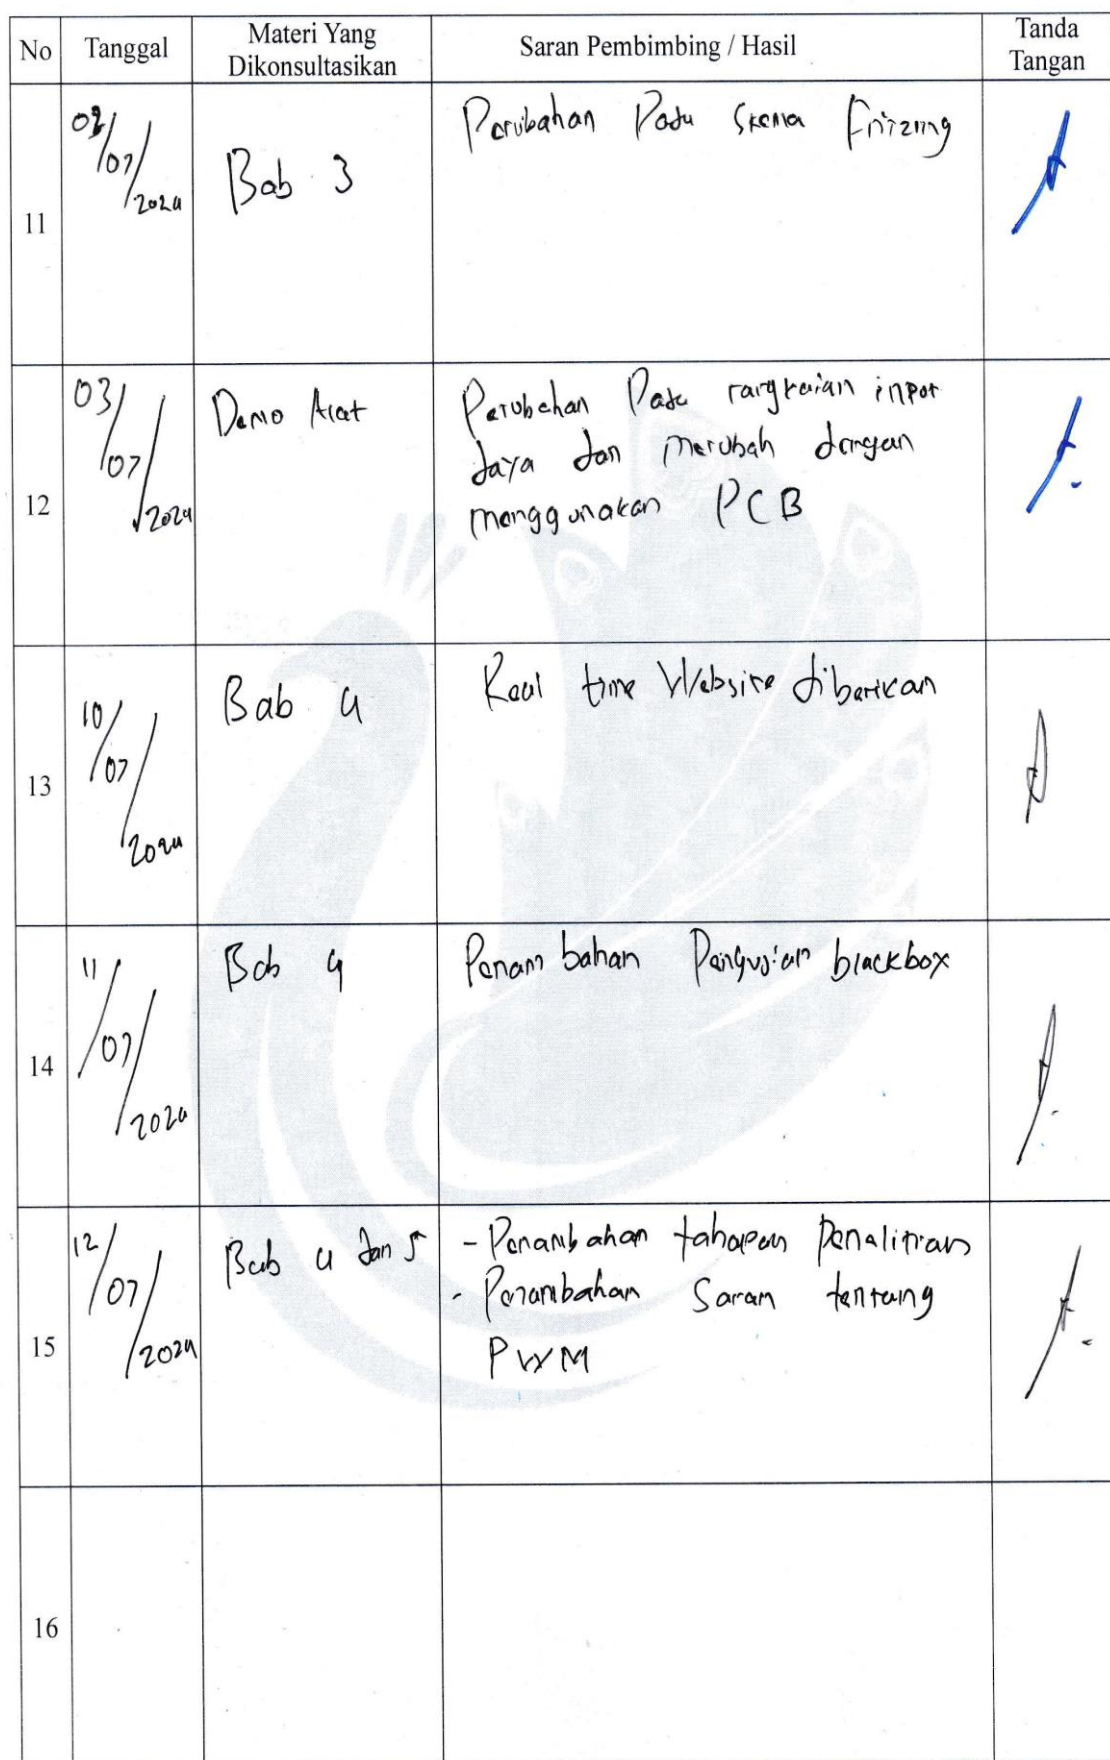 No Tanggal Materi Yang Dikonsultasikan Saran Pembimbing / Hasil Tanda Tangan
11
07/2024
Bab 3
Perubahan Pada Skema Fritzing
12
03/07/2024
Demo Alat
Perubahan Pada rangkaian input
daya dan merubah dengan
menggunakan PCB
13
10/07/2024
Bab 4
Real time Website diberikan
14
11/07/2024
Bab 4
Penambahan Pengujian blackbox
15
12/07/2024
Bab 4 dan 5
- Penambahan tahapan Penelitian
- Penambahan Saran tentang
PWM
16